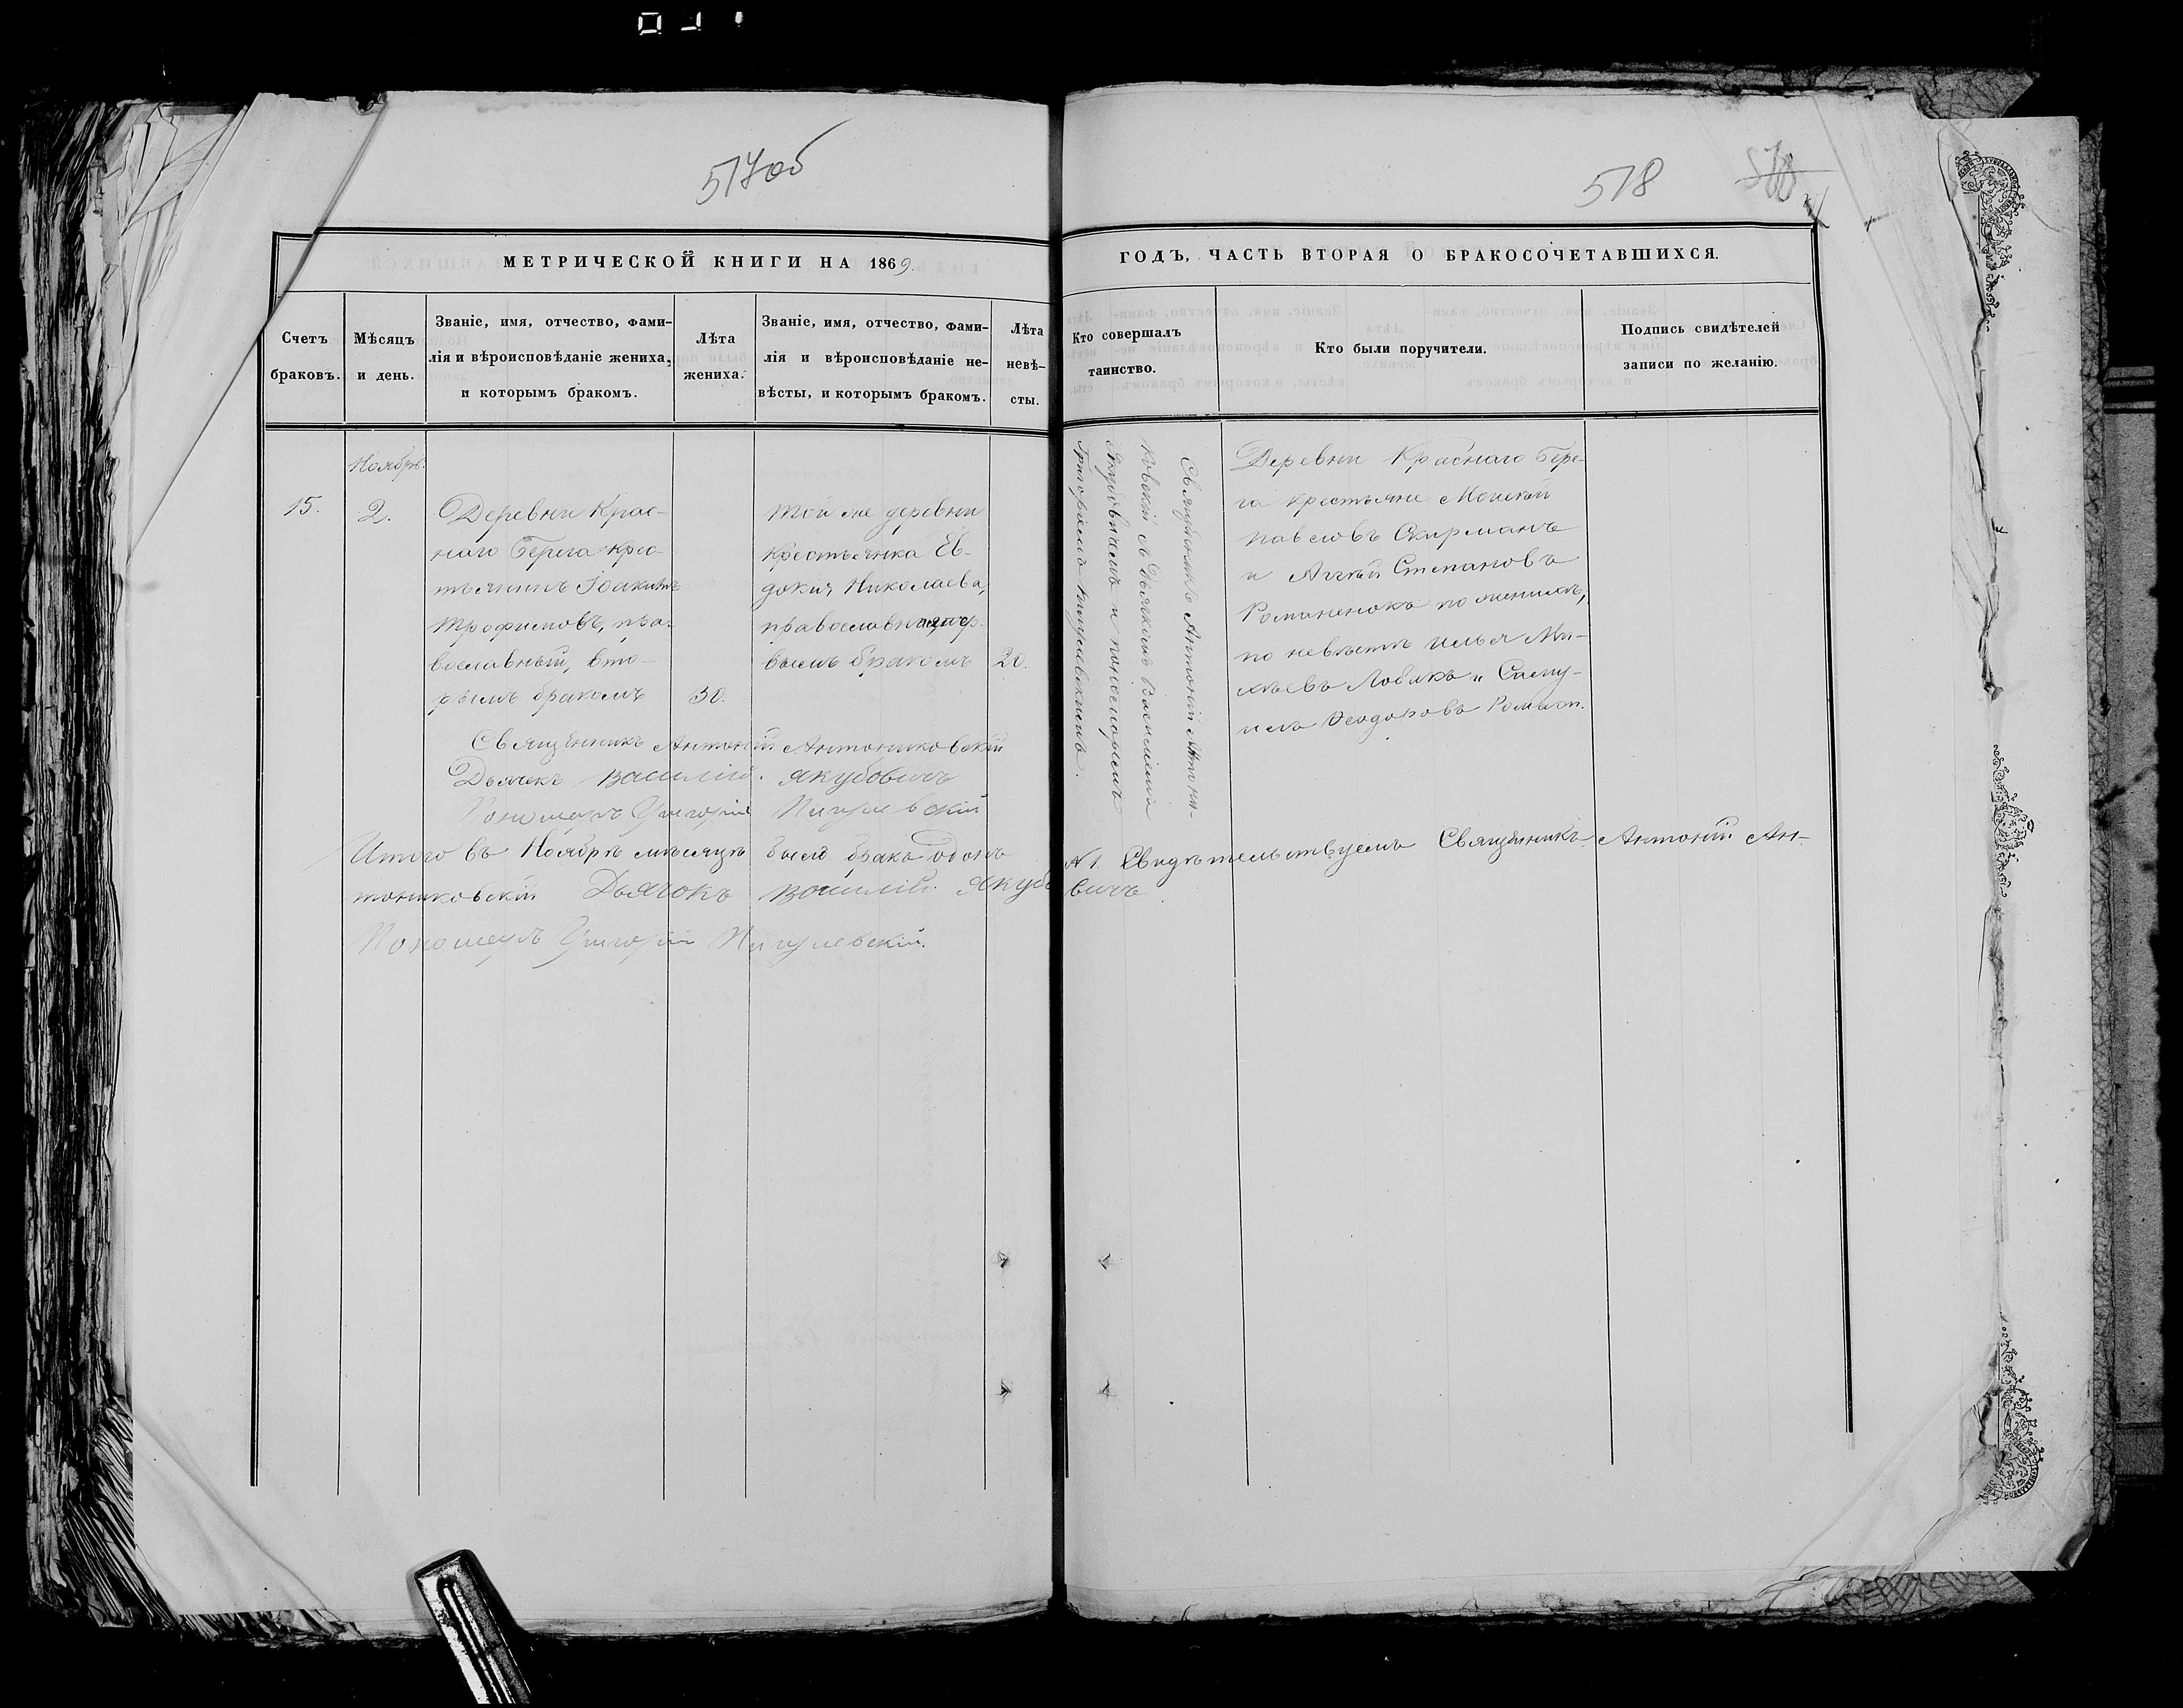 517об
518
МЕТРИЧЕСКОЙ КНИГИ НА 1869.
ГОДЪ, ЧАСТЬ ВТОРАЯ О БРАКОСОЧЕТАВШИХСЯ.
Счетъ
браковъ.
Мѣсяцъ
и день.
Званіе, имя, отчество, фами-
лія и вѣроисповѣданіе жениха,
и которымъ бракомъ.
Лѣта
жениха.
Званіе, имя, отчество, фами-
лія и вѣроисповѣданіе не-
вѣсты, и которымъ бракомъ.
Лѣта
невѣ-
сты.
Кто совершалъ
таинство.
Кто были поручители.
Подпись свидѣтелей
записи по желанію.
Ноябрь.
15.
2.
Деревни Крас-
наго Берега крес-
тьянинъ Іоакимъ
Трофимовъ, пра-
вославный, вто-
рымъ бракомъ
30.
той же деревни
крестьянка Ев-
докия Николаева,
православная пер-
вымъ бракомъ
20.
Священникъ Антоній Антони-
ковскій съ Дьячкомъ Василіемъ
Якубовичемъ и пономаремъ
Григоріемъ Пигулевскимъ.
Деревни Краснаго Бере-
га крестьяне Моисей
Павловъ Скирманъ
и Степановъ
Романенокъ по женихѣ,
по невѣстѣ Илья Ми-
Лобикъ и Саму-
илъ Ѳеодоровъ Роман.
Священникъ Антоній Антониковскій
Дьячекъ Василій Якубовичъ
Пономарь Григорій Пигулевскій
Итого въ Ноябрѣ мѣсяцѣ былъ бракъ одонъ № 1. Свидѣтельствуемъ Священникъ Антоній Ан-
тониковскій Дьячокъ Василій Якубовичъ
Пономарь Григорій Пигулевскій.